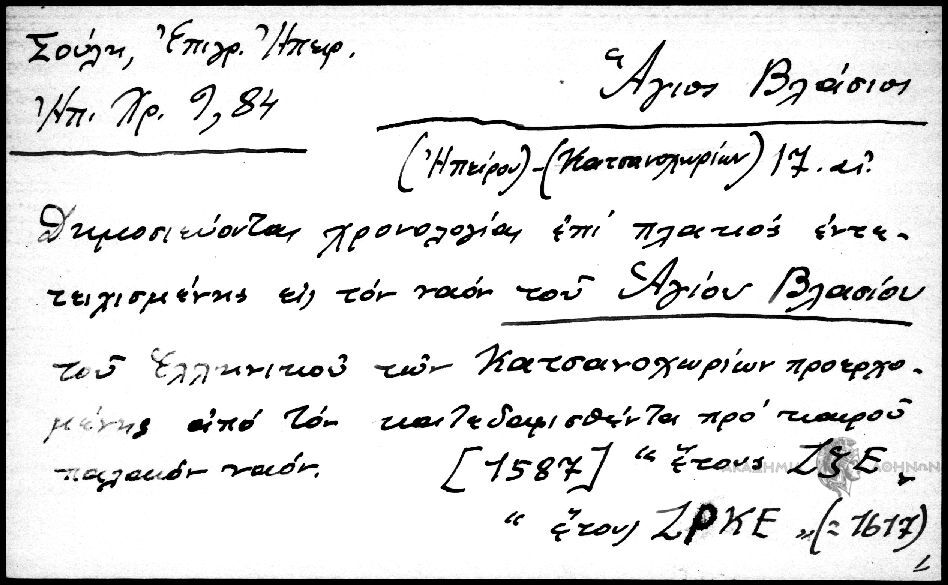 Σούλη, Ἐπιγρ. Ἠπειρ.
Ἠπ. Χρ. 9, 84
Ἅγιος Βλάσιος
(Ἠπείρου) - (Κατσανοχωρίων) 17. αἰ.
Δημοσιεύονται χρονολογίαι ἐπί πλακός ἐντε-
τειχισμένης εἰς τόν ναόν τοῦ Ἁγίου Βλασίου
τοῦ Ἑλληνικοῦ τῶν Κατσανοχωρίων προερχο-
μένης ἀπό τόν κατεδαφισθέντα πρό καιροῦ
παλαιόν ναόν. [1587] "ἔτους ΖϟΕ„
"ἔτους ΖΡΚΕ„ (= 1617)
ΑΚΑΔΗΜΙΑ ΑΘΗΝΩΝ